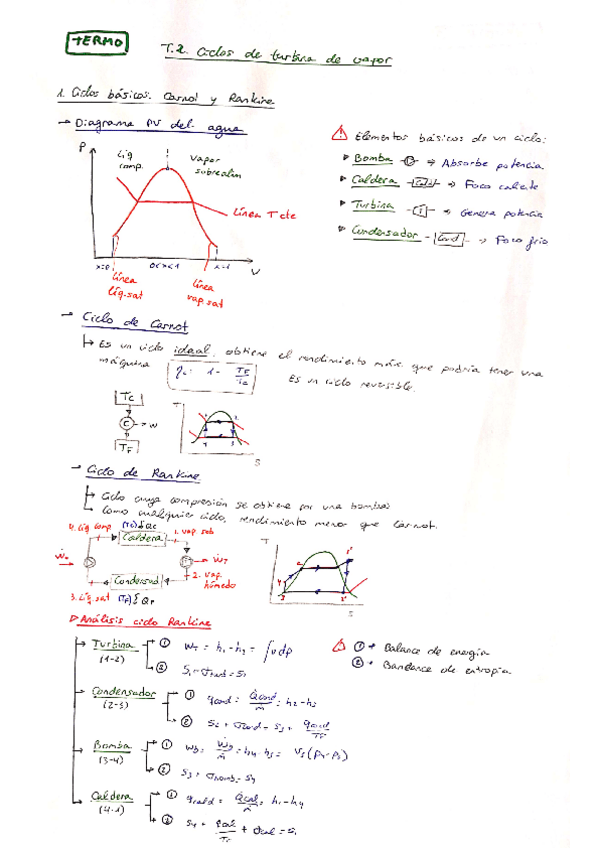 TERMO
T.2. Ciclos de turbina de vapor
1. Ciclos básicos. Carnot y Rankine
→ Diagrama PV del agua
P
Liq comp.
Vapor
línea T cte
x=0
0<x<1
x=1
V
línea líq.sat
línea vap.sat
Elementos básicos de un ciclo:
Bomba → Absorbe potencia
Caldera → Foco caliente
Turbina → Genera potencia
Condensador - Cond → Foco frío
→ Ciclo de Carnot
↳ Es un ciclo ideal, obtiene el rendimiento máx. que podría tener una
máquina
ηc: 1 - TF/Tc
Es un ciclo reversible.
Tc
C → W
TF
T
1 2
4 3
S
→ Ciclo de Rankine
Ciclo cuya compresión se obtiene por una bomba
Como cualquier ciclo, rendimiento menor que Carnot.
4. Liq comp
Caldera
1. vap sob
ẆT
2. vap húmedo
Condensad
3. Liq. sat (TF) QF
T
S
Análisis ciclo Rankine
Turbina (1-2)
① wT = h1 - h2 = ∫vdp
② S1 + σturb = S2
Condensador (2-3)
① qcond = Q̇cond/ṁ = h2 - h3
② S2 + σcond = S3 + qcond/TF
Bomba (3-4)
① wb = Ẇb/ṁ = h4 - h3 = V3 (P4 - P3)
② S3 + σbomb = S4
Caldera (4-1)
① qcald = Q̇cal/ṁ = h1 - h4
② S4 + qcal/Tc + σcal = S1
① → Balance de energía
② → Bandance de entropía